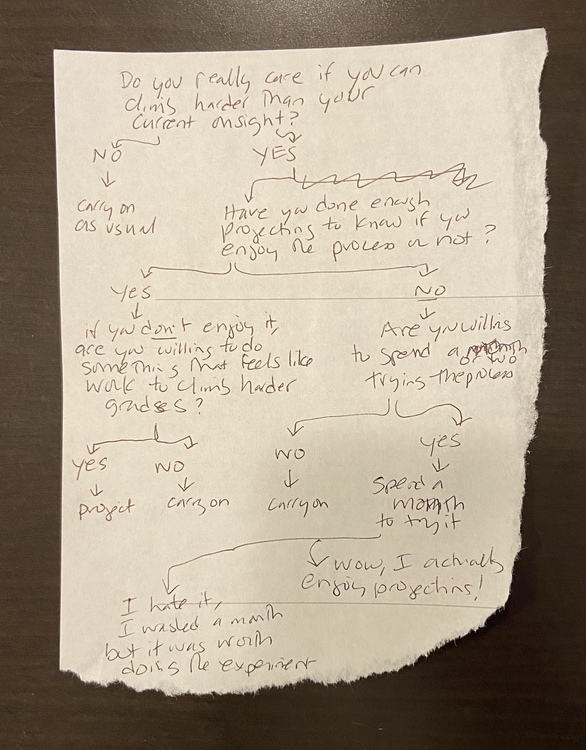 Do you really care if you can
climb harder than your
current onsight?
NO
YES
carry on
as usual
Have you done enough
projecting to know if you
enjoy the process or not?
Yes
NO
if you don't enjoy it,
are you willing to do
something that feels like
work to climb harder
grades?
Are you willing
to spend a month
or two
trying the process
yes
NO
NO
yes
project
carry on
carry on
Spend a
month
to try it
Wow, I actually
enjoy projecting!
I hate it,
I wasted a month
but it was worth
doing the experiment